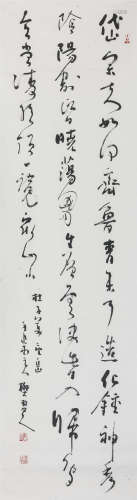 岱宗夫如何齊魯青未了造化鍾神秀
陰陽割昏曉蕩胸生曾雲決眥入歸鳥
會當凌絕頂一覽眾山小
杜子美望岳